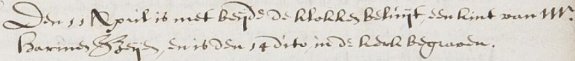 Den 11 April is met beÿde de klokken beluijt een kint van Mr.
Harmen, en is den 14 dito in de kerk begraven.